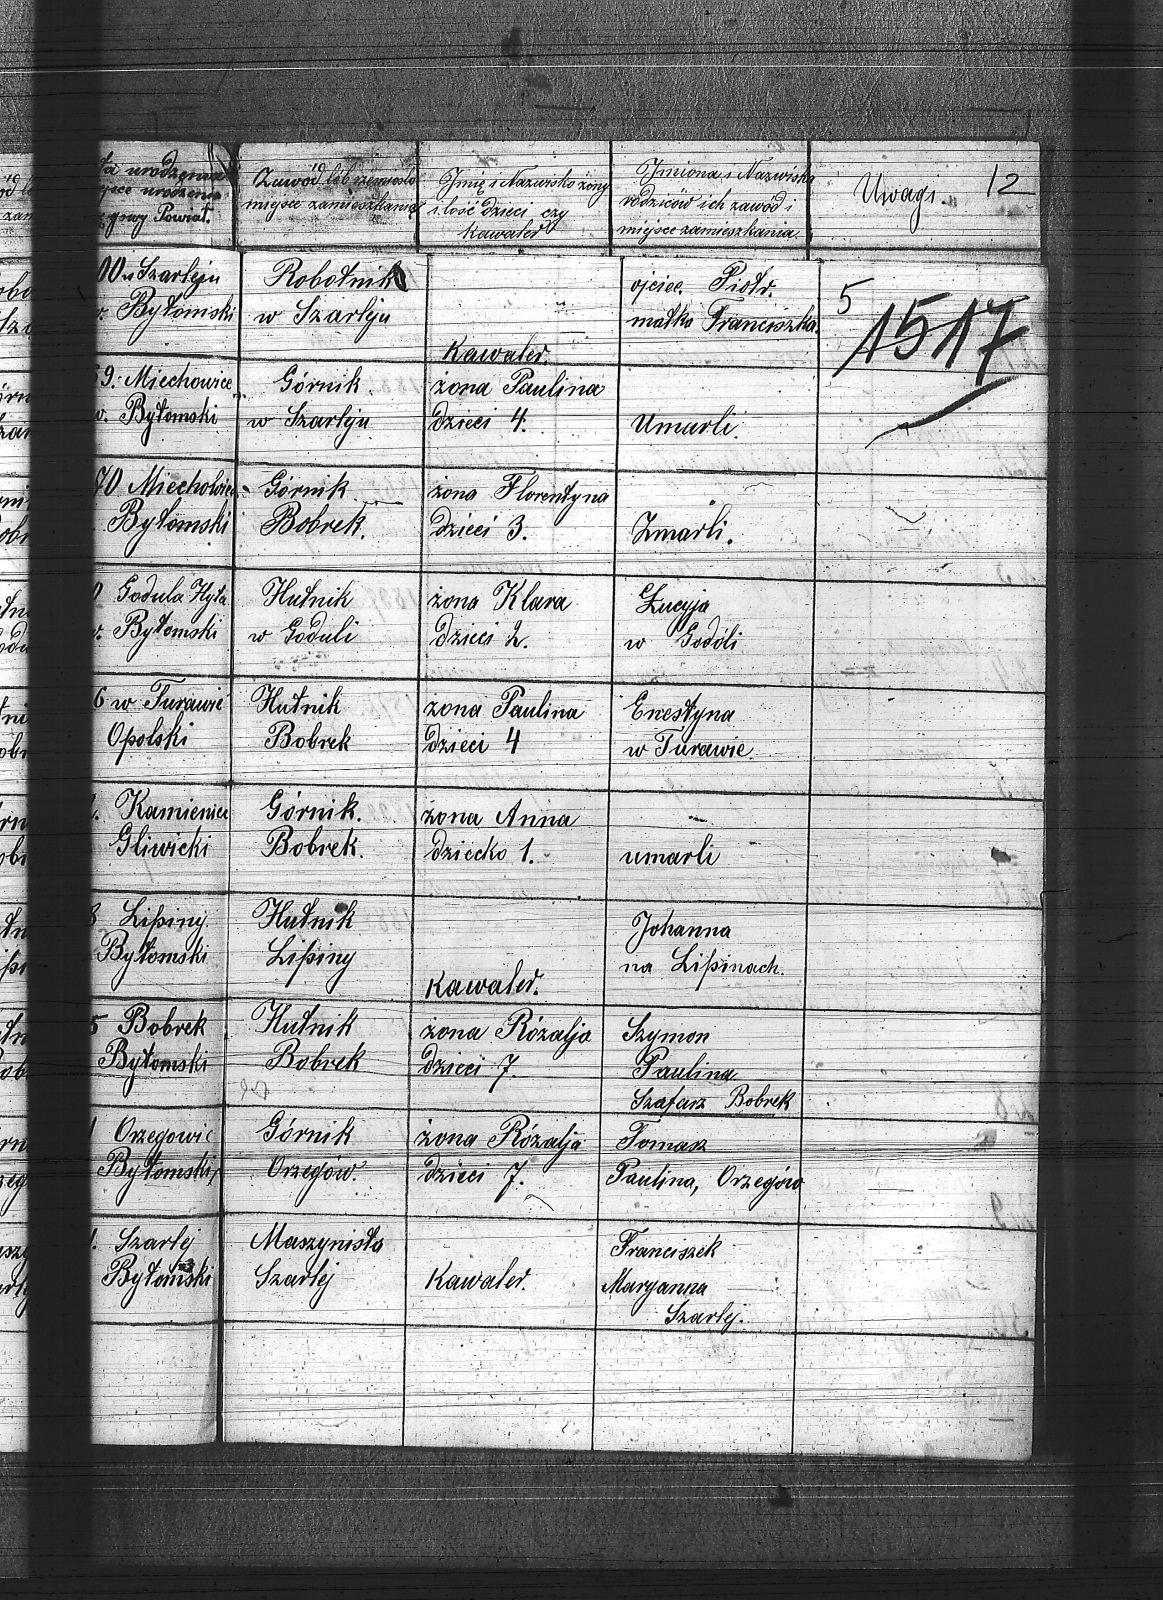 urodzenia
miejsce urodzenia
Powiat.
Zawód lób rzemiosło
miejsce zamieszkania
Jmię i Nazwisko żony
i ilość dzieci czy
Kawaler
Jmiona i Nazwiska
rodziców ich zawód i
miejsce zamieszkania.
Uwagi. 12
00 w Szarleju
Bytomski
Robotnik
w Szarleju
Kawaler
ojciec. Piotr.
matka Franciszka.
5
1517
9. Miechowice
Bytomski
Górnik
w Szarleju
żona Paulina
dzieci 4.
Umarli.
70 Miechowice
Bytomski
Górnik
Bobrek.
żona Florentyna
dzieci 3.
Zmarli.
Godula Hyta
Bytomski
Hutnik
w Goduli
żona Klara
dzieci 2.
Łucyja
w Godóli
6 w Turawie
Opolski
Hutnik
Bobrek
żona Paulina
dzieci 4
Enestyna
w Turawie
Kamieniec
Gliwicki
Górnik.
Bobrek.
żona Anna
dziecko 1.
umarli
8 Lipiny
Bytomski
Hutnik
Lipiny
Kawaler.
Johanna
na Lipinach.
5 Bobrek
Bytomski
Hutnik
Bobrek
żona Rózalja
dzieci 7.
Szymon
Paulina
Szafarz Bobrek
Orzegowie
Bytomski
Górnik
Orzegów.
żona Rózalja
dzieci 7.
Tomasz
Paulina, Orzegów
Szarlej
Bytomski
Maszynista
Szarlej
Kawaler.
Franciszek
Maryanna
Szarlej.